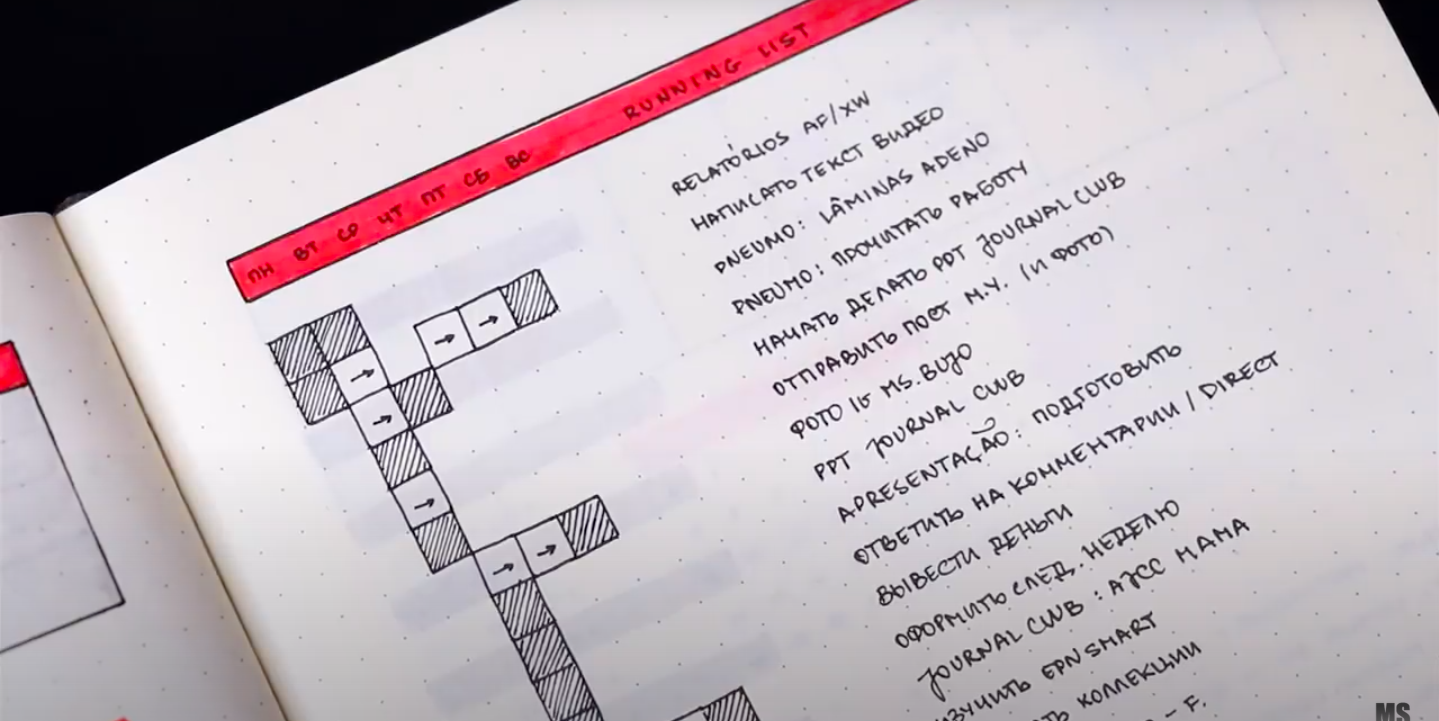 ПН ВТ СР ЧТ ПТ СБ ВС RUNNING LIST
RELATÓRIOS AF/XW
НАПИСАТЬ ТЕКСТ ВИДЕО
PNEUMO: LÂMINAS ADENO
PNEUMO: ПРОЧИТАТЬ РАБОТУ
НАЧАТЬ ДЕЛАТЬ PPT JOURNAL CLUB
ОТПРАВИТЬ ПОСТ М.Ч. (И ФОТО)
ФОТО IG MS. BUJO
PPT JOURNAL CLUB
APRESENTAÇÃO: ПОДГОТОВИТЬ
ОТВЕТИТЬ НА КОММЕНТАРИИ / DIRECT
ВЫВЕСТИ ДЕНЬГИ
ОФОРМИТЬ СЛЕД. НЕДЕЛЮ
JOURNAL CLUB: AJCC МАМА
ИЗУЧИТЬ EPN SMART
КОЛЛЕКЦИИ
– F.
MS